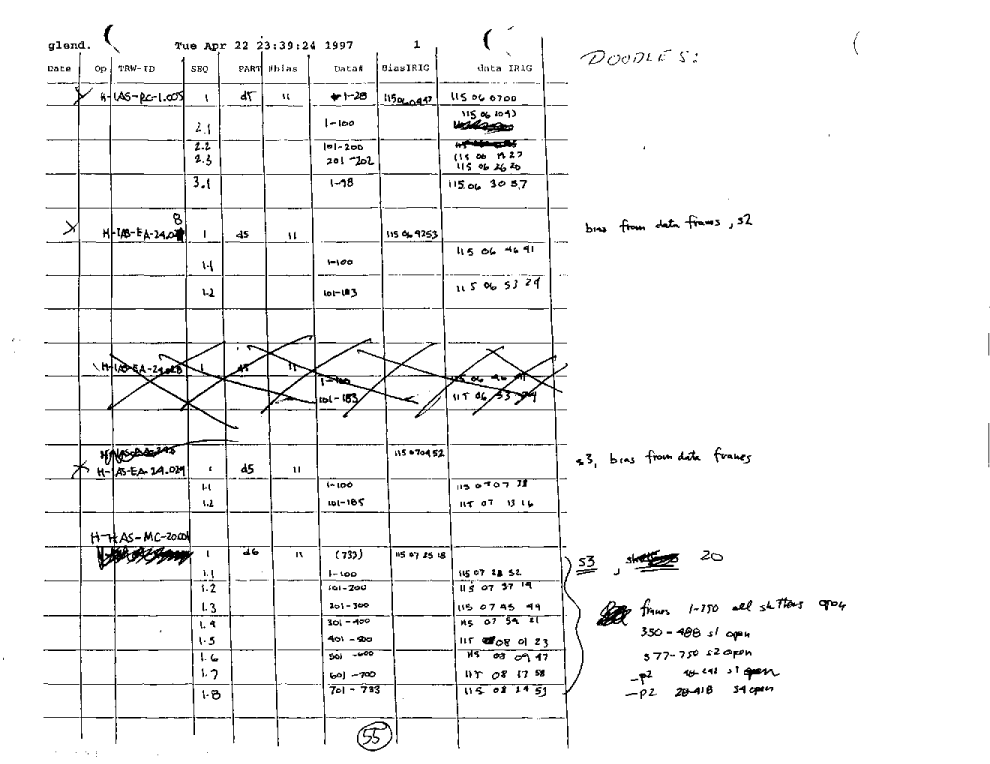 glend. Tue Apr 22 23:39:24 1997 1
DOODLES:
Date Op TRW-ID SEQ PART #bias Data# BiasIRIG data IRIG
H-IAS-RC-1.005 1 d5 11 1-28 115 06 0700
2.1 1-100
2.2 101-200
2.3 201-202 115 06 26 20
3.1 1-98 115 06 30 57
8
H-IAS-EA-24.02 1 d5 11 115 06 4253 bias from data frames, s2
115 06 46 41
1.1 1-100
1.2 101-183 115 06 53 24
H-IAS-EA-24.028 1 d5 11
1-100 115 06 46 41
101-183 115 06 53 24
115 070452
H-IAS-EA-24.029 1 d5 11 s3, bias from data frames
1.1 1-100 115 07 07 38
1.2 101-185 115 07 13 16
H-HAS-MC-20.001
1 d6 11 (733) 115 07 25 18 s3, 20
1.1 1-100 115 07 28 52
1.2 101-200 115 07 37 19
1.3 201-300 115 07 45 49
frames 1-350 all shutters open
1.4 301-400 115 07 54 21
350-488 s1 open
1.5 401-500 115 08 01 23
1.6 501-600 115 08 09 47
577-750 s2 open
1.7 601-700 115 08 17 58
-p2 s1 open
1.8 701-733 115 08 24 51
-p2 28-418 s4 open
55